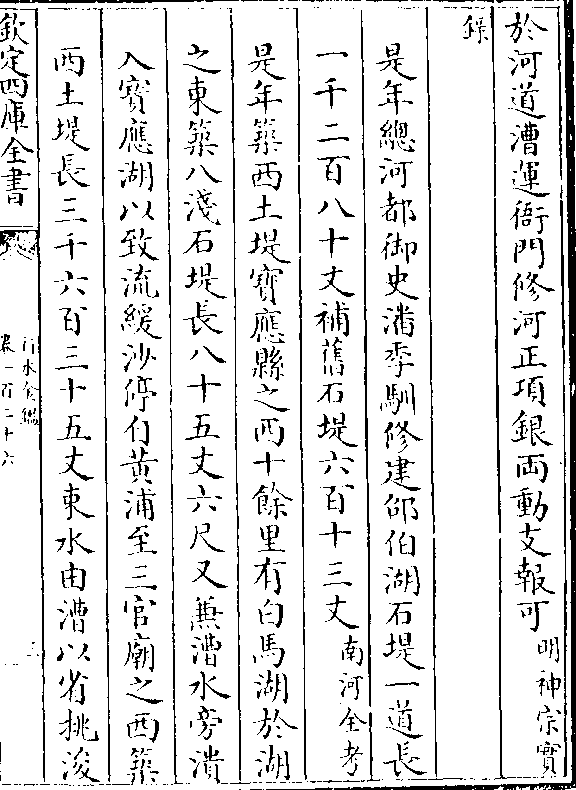 於河道漕運衙門修河正項銀両動支報可明神宗實
錄
是年總河都御史潘季馴修建邵伯湖石堤一道長
一千二百八十丈補舊石堤六百十三丈南河全考
是年築西土堤寳應縣之西十餘里有白馬湖於湖
之東築八淺石堤長八十五丈六尺又無漕水旁潰
入寳應湖以致流緩沙停自黃浦至三官廟之西築
西土堤長三千六百三十五丈束水由漕以省挑浚
欽定四庫全書
行水金鑑
卷一百二十六
三